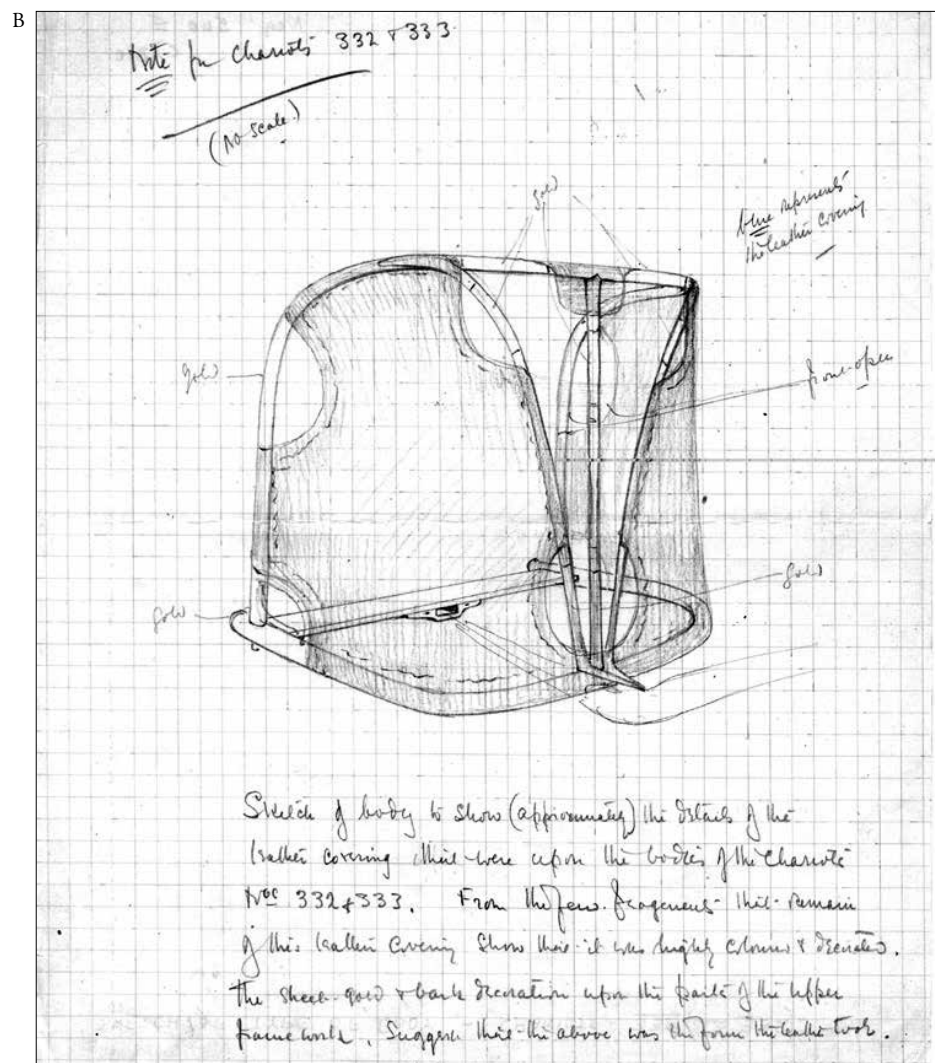 B
Note for Chariots 332 & 333.
(No scale.)
gold
blue represents
the leather covering
gold
front open
gold
gold
Sketch of body to show (approximately) the details of the
leather covering that were upon the bodies of the Chariots
Nos 332 & 333. From the few fragments that remain
of this leather covering show that it was highly coloured & decorated.
The sheet-gold & bark decoration upon the parts of the upper
framework, suggest that the above was the form the leather took.